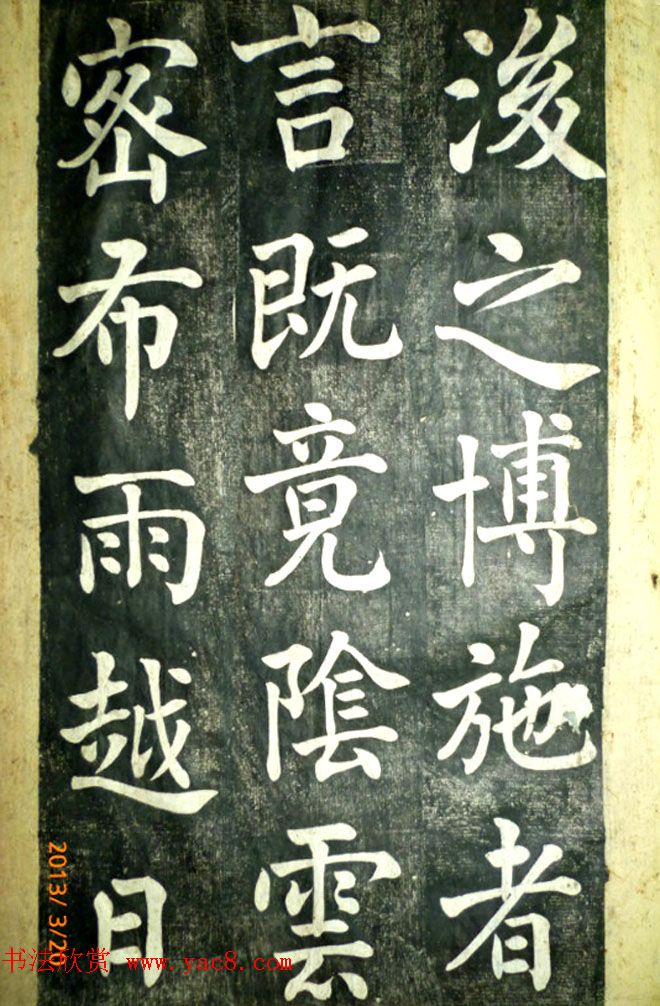 浚之博施者
言既竟陰雲
密布雨越日
2013/ 3/26
书法欣赏 www.yac8.com